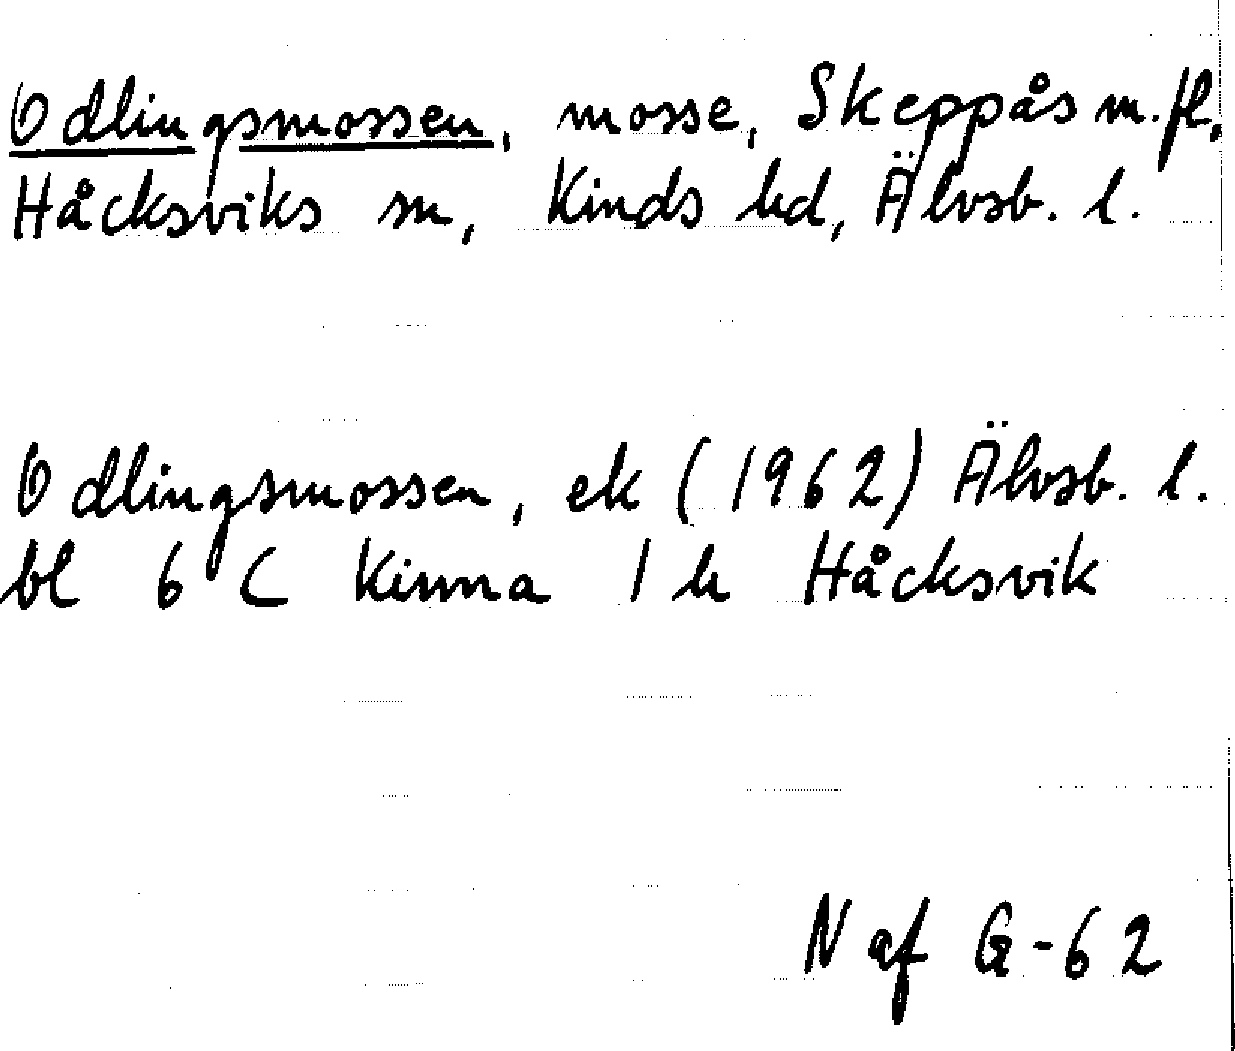 Odlingsmossen, mosse, Skeppås m.fl.
Håcksviks sn, Kinds hd, Älvsb. l.
Odlingsmossen, ek (1962) Älvsb. l.
bl 6 C Kinna 1 h Håcksvik
N af G-62